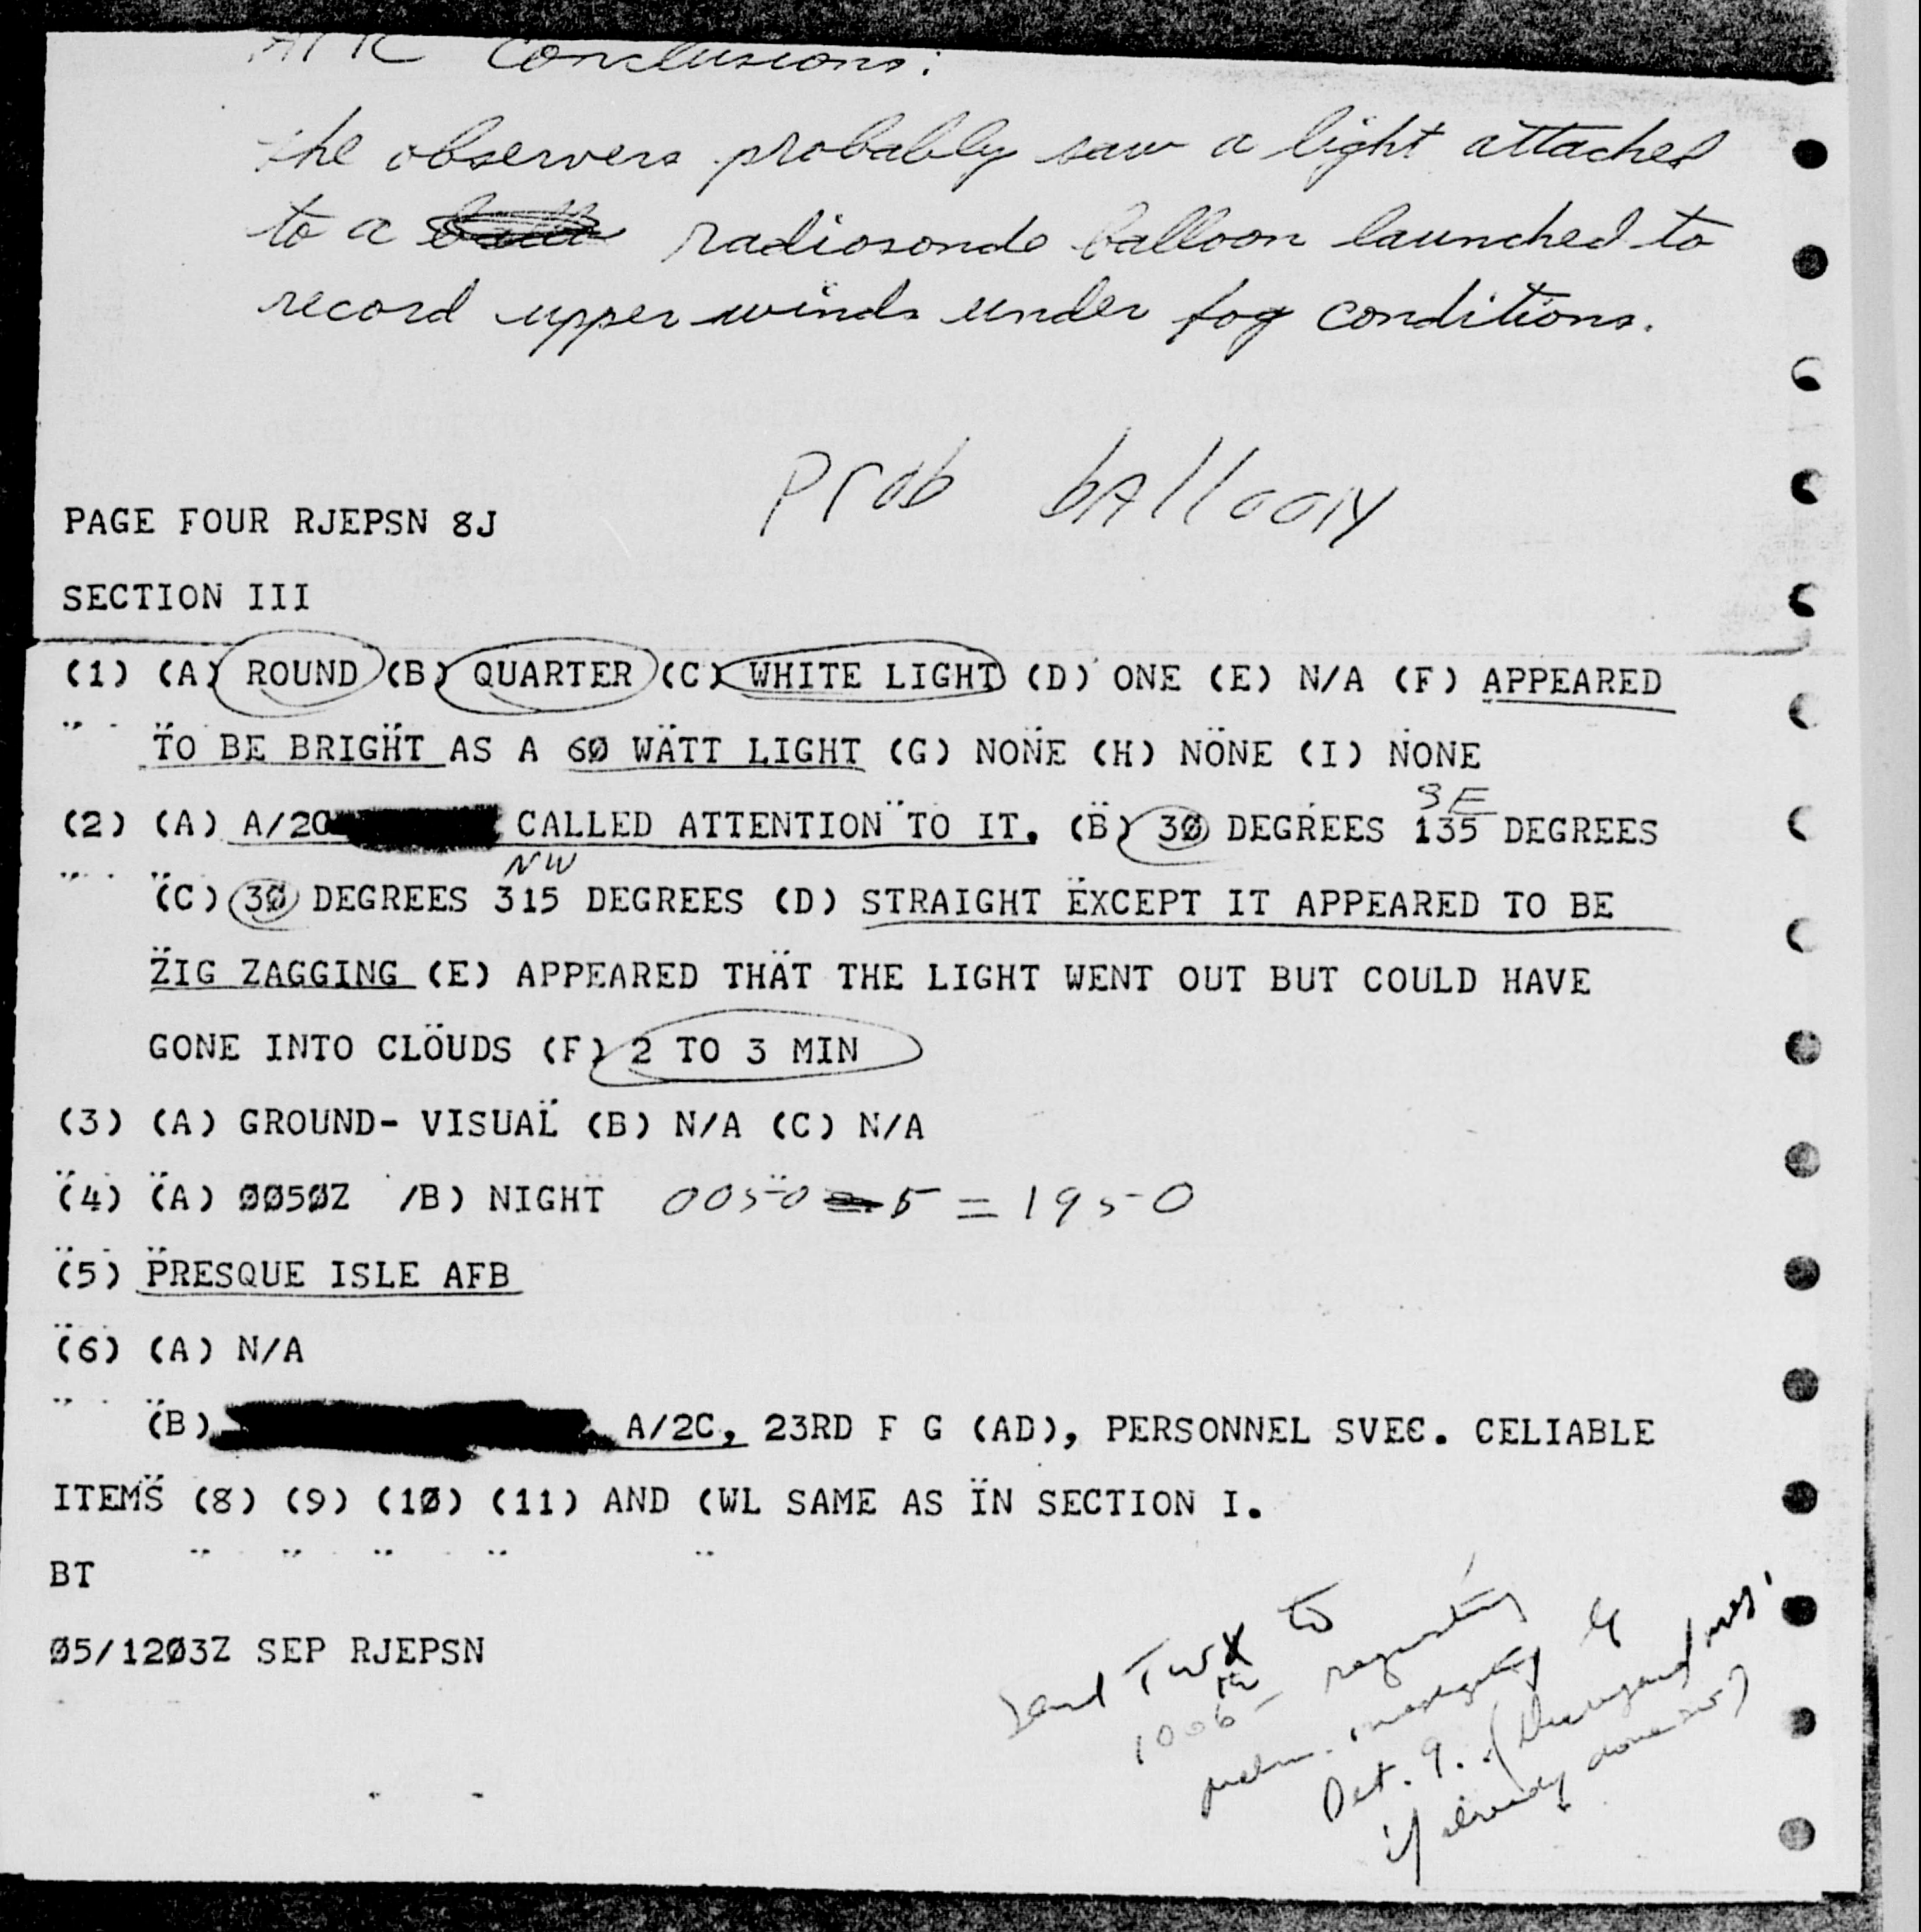 Conclusions:
The observers probably saw a light attached
to a radiosonde balloon launched to
record upper winds under fog conditions.
Prob bAllooN
PAGE FOUR RJEPSN 8J
SECTION III
(1) (A) ROUND (B) QUARTER (C) WHITE LIGHT (D) ONE (E) N/A (F) APPEARED
TO BE BRIGHT AS A 6Ø WATT LIGHT (G) NONE (H) NONE (I) NONE
SE
(2) (A) A/2C CALLED ATTENTION TO IT. (B) 3Ø DEGREES 135 DEGREES
NW
(C) 3Ø DEGREES 315 DEGREES (D) STRAIGHT EXCEPT IT APPEARED TO BE
ZIG ZAGGING (E) APPEARED THAT THE LIGHT WENT OUT BUT COULD HAVE
GONE INTO CLOUDS (F) 2 TO 3 MIN
(3) (A) GROUND- VISUAL (B) N/A (C) N/A
(4) (A) ØØ5ØZ /B) NIGHT 0050 - 5 = 1950
(5) PRESQUE ISLE AFB
(6) (A) N/A
(B) A/2C, 23RD F G (AD), PERSONNEL SVEC. CELIABLE
ITEMS (8) (9) (1Ø) (11) AND (WL SAME AS IN SECTION I.
BT
Ø5/12Ø3Z SEP RJEPSN
Send TWX to
1006th requesting
prelim. by
Det. 9. (
if already done so)